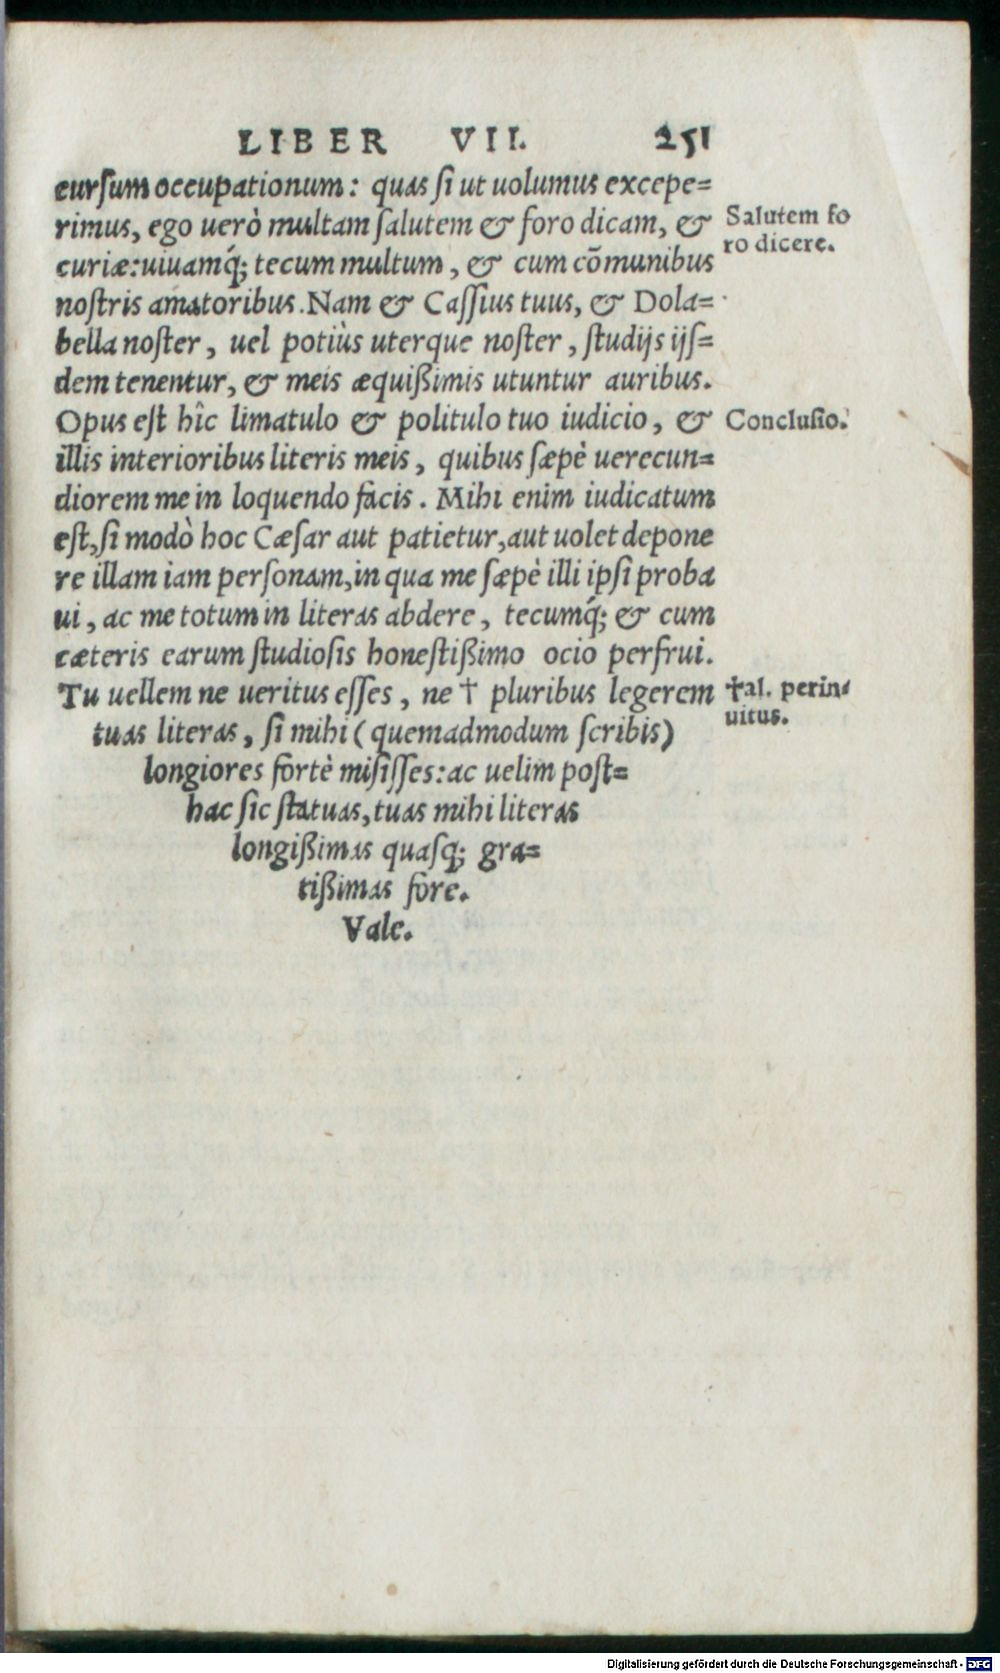 LIBER VII. 251
cursum occupationum: quas si ut uolumus excepe=
rimus, ego uerò multam salutem & foro dicam, &
curiæ: uiuamq́; tecum multum, & cum cōmunibus
nostris amatoribus. Nam & Cassius tuus, & Dola=
bella noster, uel potiùs uterque noster, studijs ijs=
dem tenentur, & meis æquißimis utuntur auribus.
Opus est hîc limatulo & politulo tuo iudicio, &
illis interioribus literis meis, quibus sæpè uerecun=
diorem me in loquendo facis. Mihi enim iudicatum
est, si modò hoc Cæsar aut patietur, aut uolet depone
re illam iam personam, in qua me sæpè illi ipsi proba
ui, ac me totum in literas abdere, tecumq́; & cum
cæteris earum studiosis honestißimo ocio perfrui.
Tu uellem ne ueritus esses, ne † pluribus legerem
tuas literas, si mihi (quemadmodum scribis)
longiores fortè misisses: ac uelim post=
hac sic statuas, tuas mihi literas
longißimas quasq; gra=
tißimas fore.
Vale.
Salutem fo
ro dicere.
Conclusio.
†al. perin=
uitus.
Digitalisierung gefördert durch die Deutsche Forschungsgemeinschaft - DFG